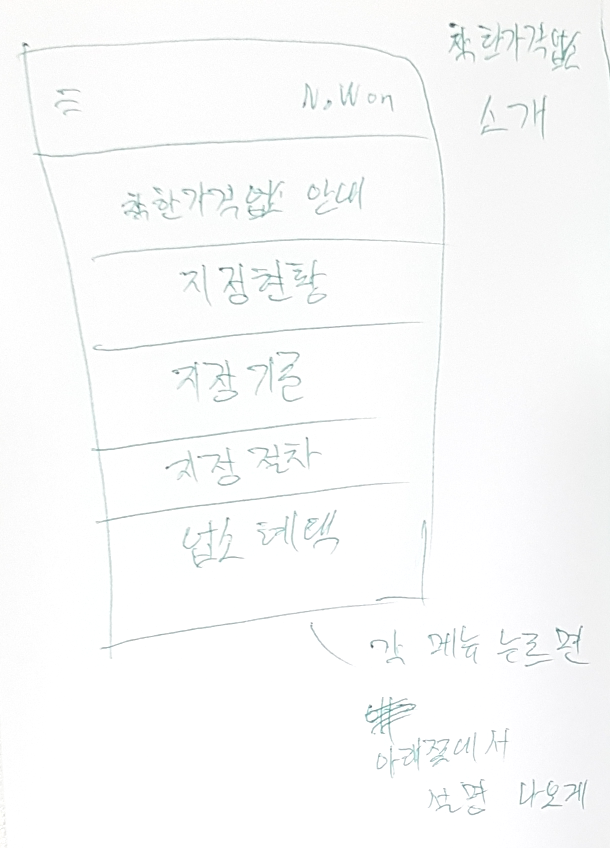 착한가격업소
소개
N.Won
착한가격업소 안내
지정현황
지정기준
지정 절차
업소 혜택
각 메뉴 누르면
아래쪽에서
설명 나오게